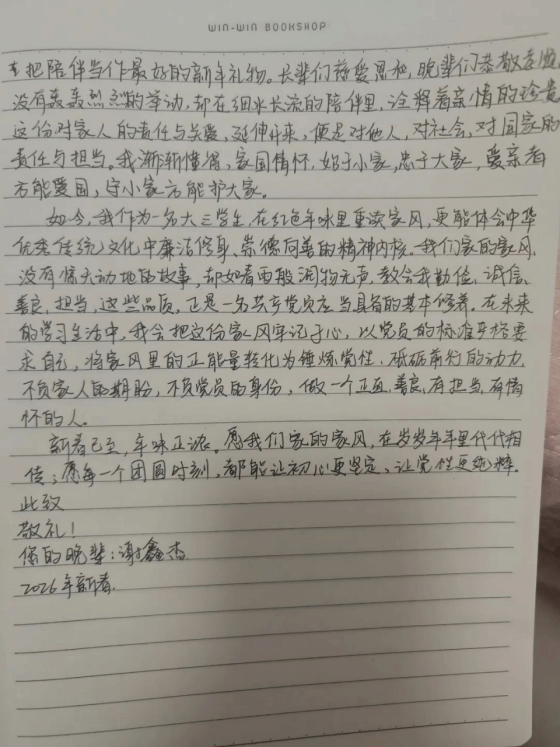 WIN-WIN BOOKSHOP
把陪伴当作最好的新年礼物。长辈们慈爱恩和,晚辈们恭敬孝顺,
没有轰轰烈烈的举动,却在细水长流的陪伴里,诠释着亲情的
这份对家人的责任与关爱,延伸开来,便是对他人、对社会、对国家的
责任与担当。我渐渐懂得,家国情怀,始于小家,忠于大家,爱亲者
方能爱国,守小家方能护大家。
如今,我作为一名大三学生,在红色年味里重读家风,更能体会中华
优秀传统文化中廉洁修身、崇德向善的精神内核。我们家的家风,
没有惊天动地的故事,却如春雨般润物无声,教会我勤俭、诚信、
善良、担当,这些品质,正是一名共产党员应当具有的基本修养。在未来
的学习生活中,我会把这份家风牢记于心,以党员的标准严格要
求自己,将家风里的正能量转化为锤炼党性、砥砺前行的动力,
不负家人的期盼,不负党员的身份,做一个正直、善良、有担当、有情
怀的人。
新春已至,年味正浓。愿我们家的家风,在岁岁年年里代代相
传;愿每一个团圆时刻,都能让初心更坚定、让党性更纯粹。
此致
敬礼!
您的晚辈:谢鑫杰
2026年新春.